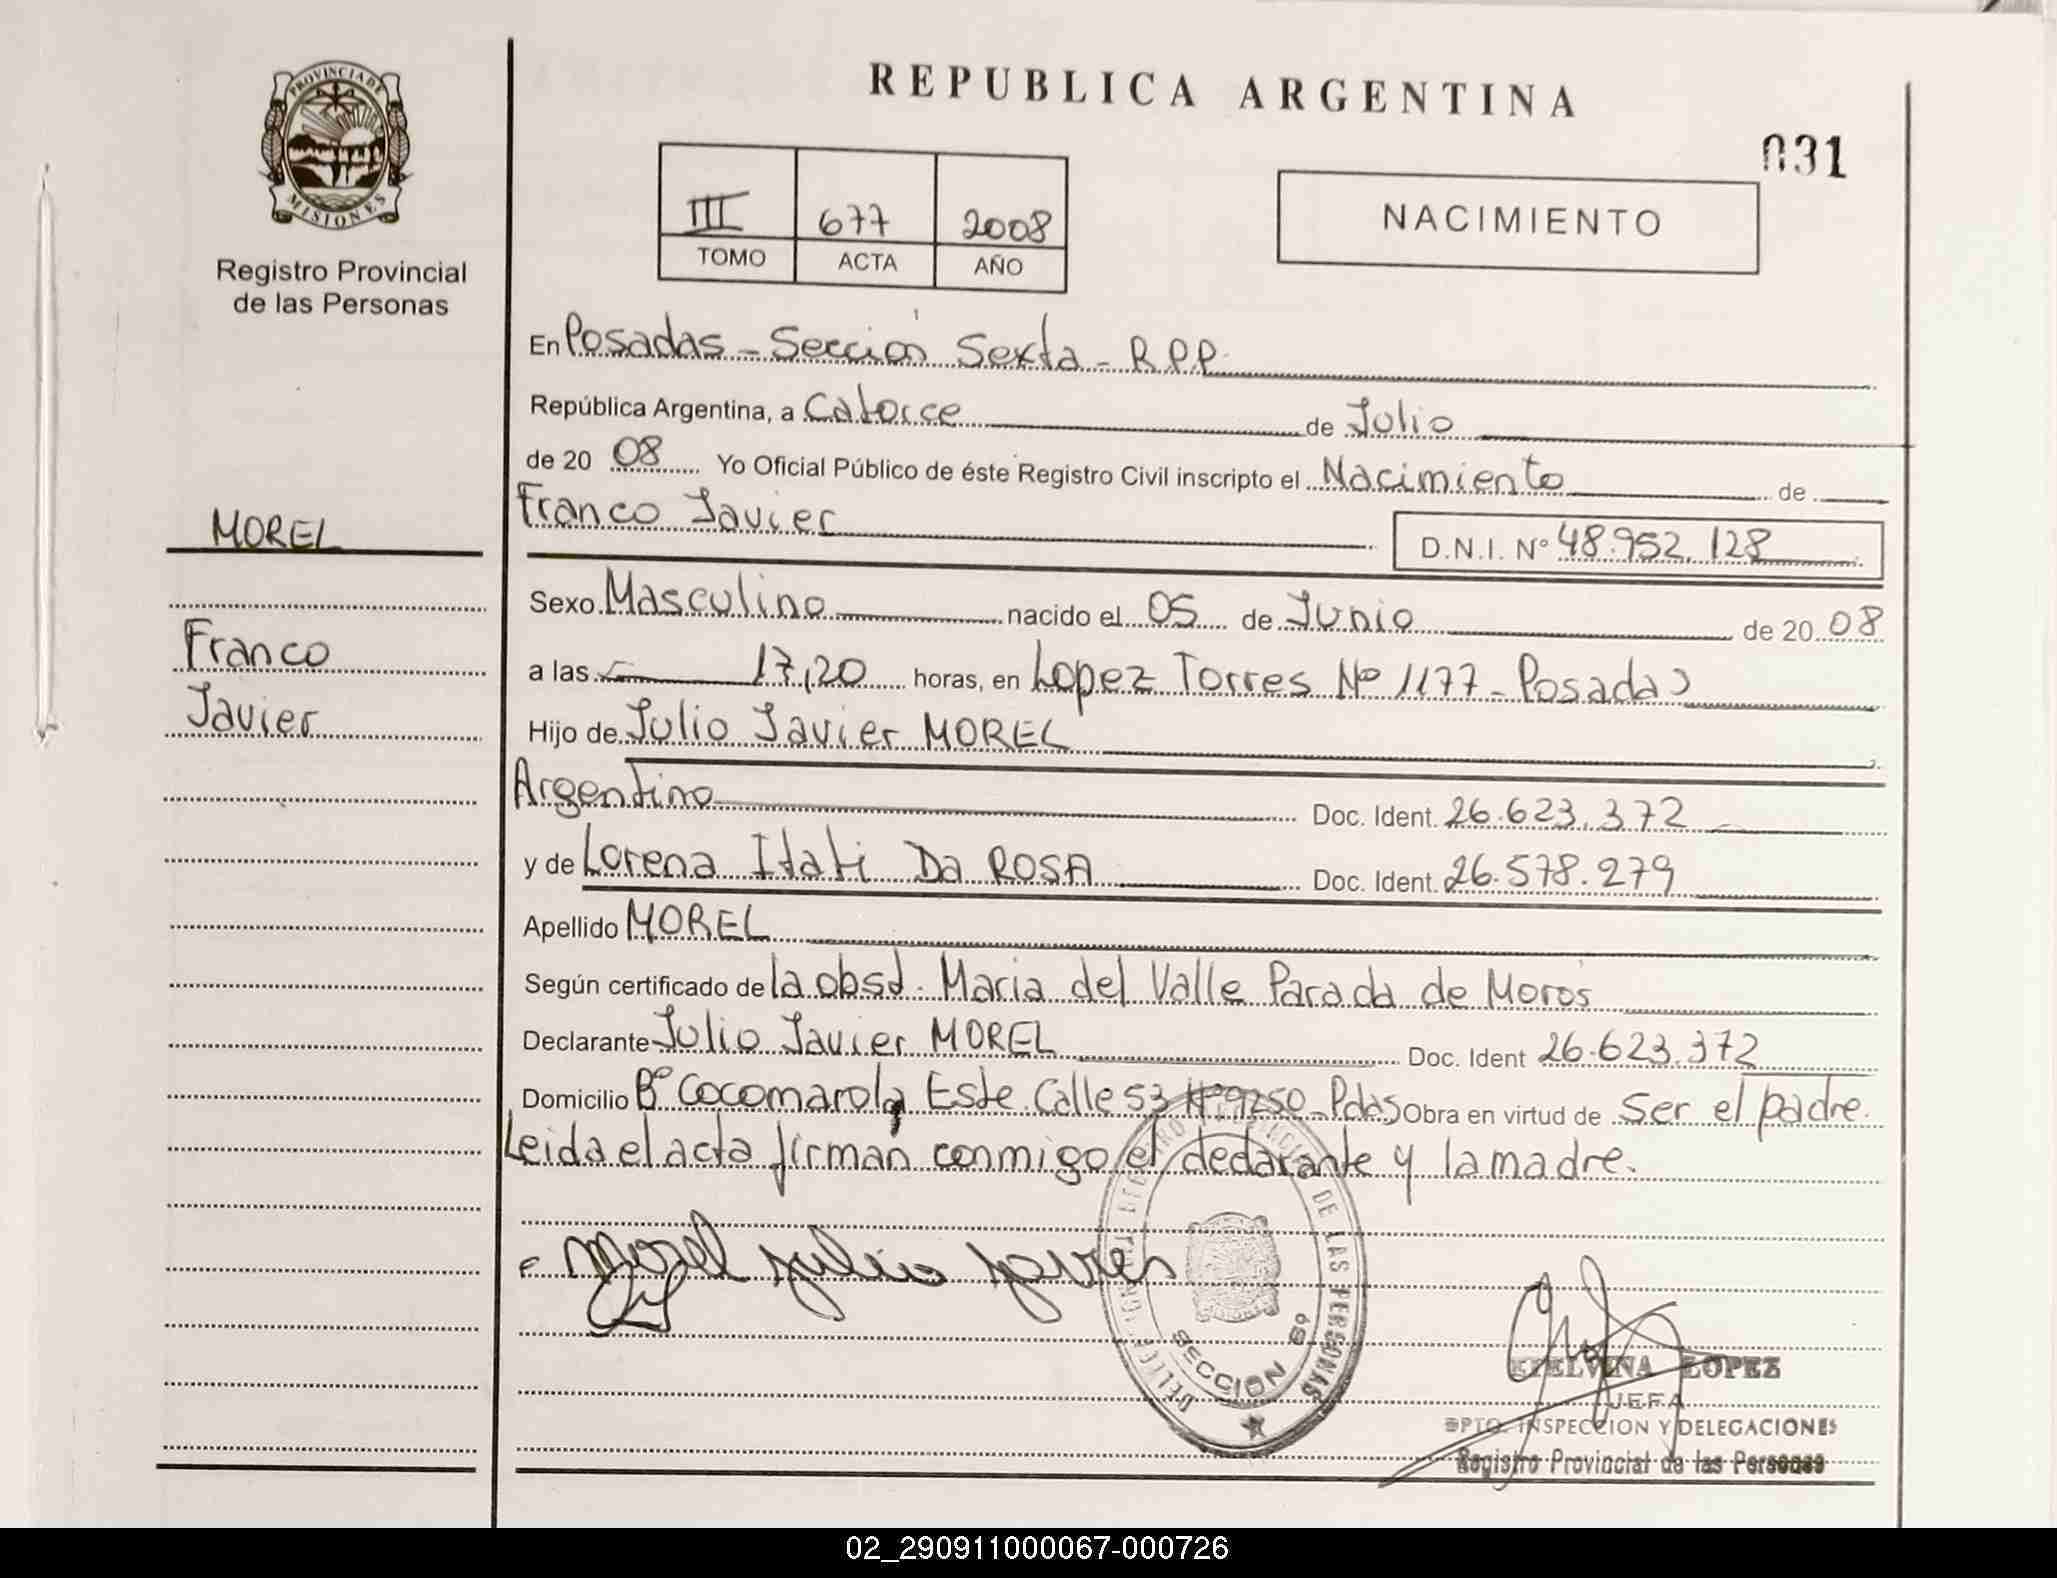 REPUBLICA ARGENTINA
031
PROVINCIA DE
MISIONES
Registro Provincial
de las Personas
III 677 2008
TOMO ACTA AÑO
NACIMIENTO
En Posadas - Sección Sexta - R.P.P.
República Argentina, a Catorce de Julio
de 20 08 Yo Oficial Público de éste Registro Civil inscripto el Nacimiento de
Franco Javier
D.N.I. Nº 48.952.128
MOREL
Franco
Javier
Sexo Masculino nacido el 05 de Junio de 20 08
a las 17,20 horas, en Lopez Torres Nº 1177 - Posadas
Hijo de Julio Javier MOREL
Argentino Doc. Ident. 26.623.372
y de Lorena Itati Da ROSA Doc. Ident. 26.578.279
Apellido MOREL
Según certificado de la obst. Maria del Valle Parada de Moros
Declarante Julio Javier MOREL Doc. Ident 26.623.372
Domicilio Bº Cocomarola Este Calle 53 Nº 9250 - Pdas Obra en virtud de ser el padre.
Leida el acta firman conmigo el declarante y la madre.
Morel Julio Javier
DE LAS PERSONAS
SECCION 6º
ETELVINA LOPEZ
JEFA
DPTO. INSPECCION Y DELEGACIONES
Registro Provincial de las Personas
02_290911000067-000726